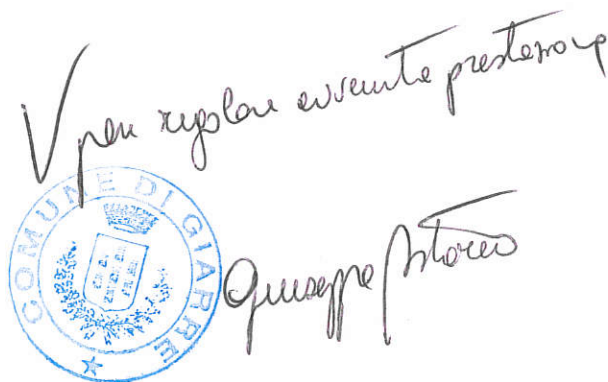 V per regolare avvenuta prestazione
COMUNE DI GIARRE
Giuseppe